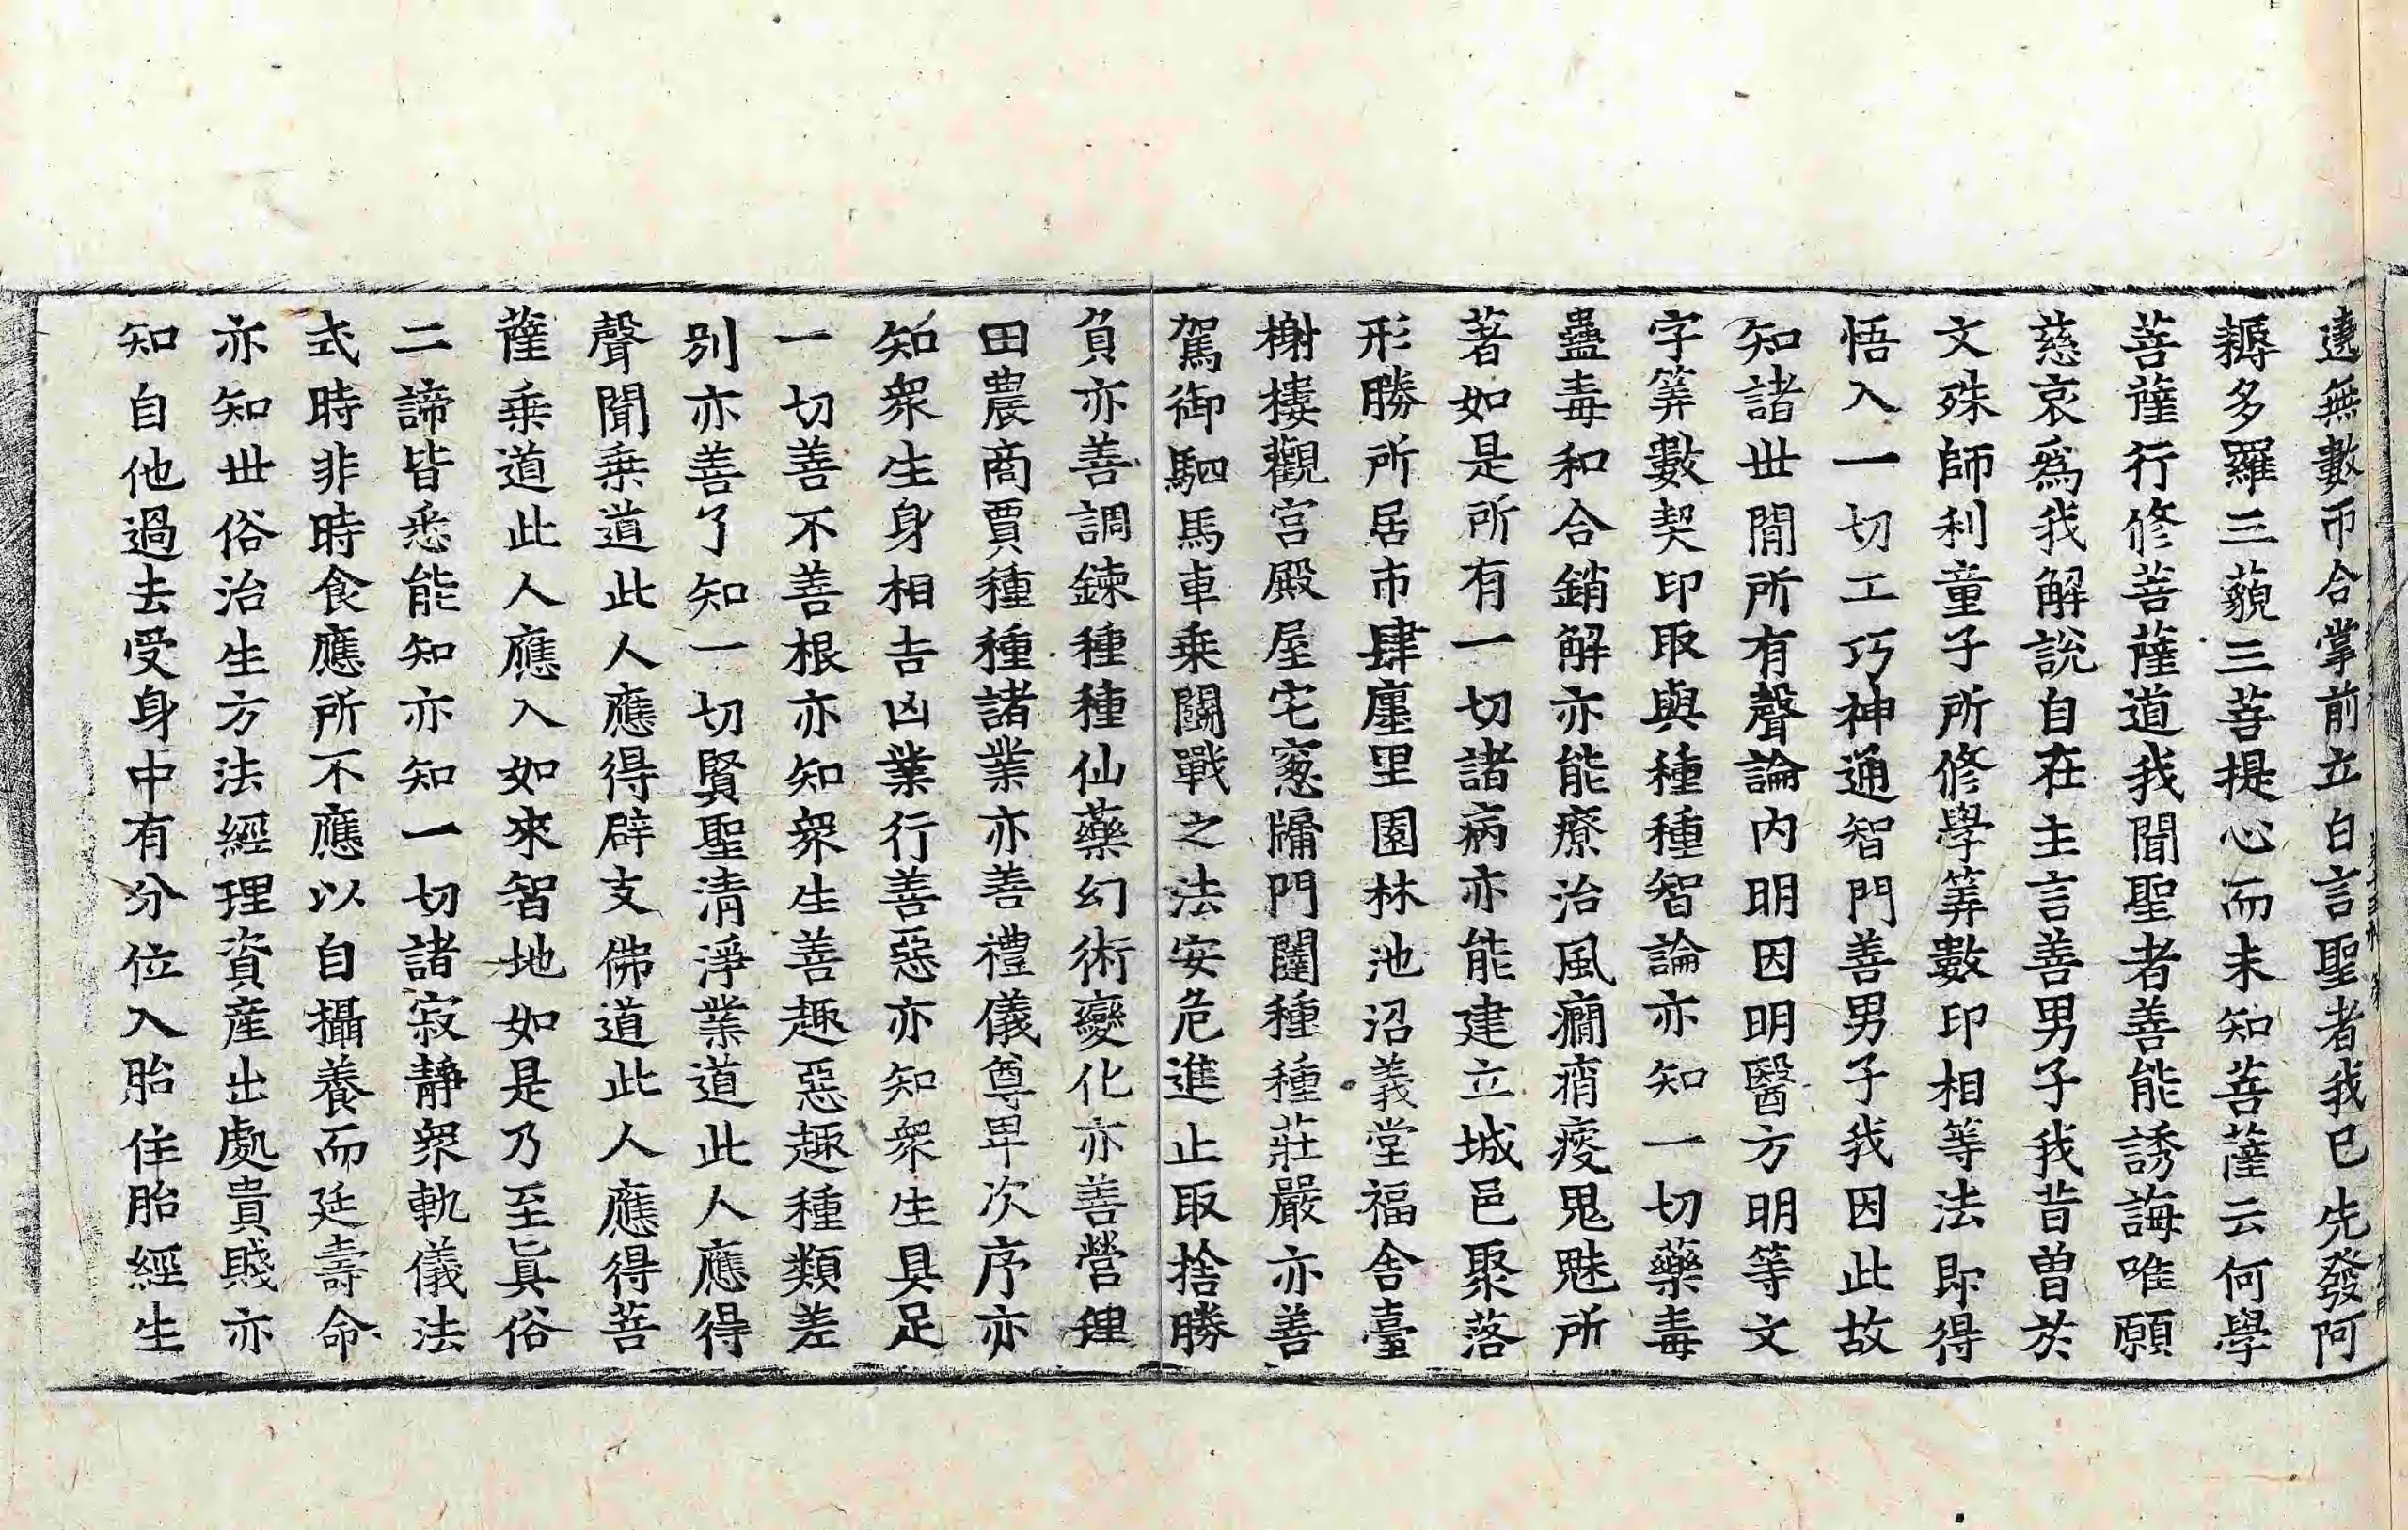 遶無數帀合掌前立白言聖者我已先發阿
耨多羅三藐三菩提心而未知菩薩云何學
菩薩行修菩薩道我聞聖者善能誘誨唯願
慈哀爲我解說自在主言善男子我昔曽於
文殊師利童子所修學筭數印相等法即得
悟入一切工巧神通智門善男子我因此故
知諸世間所有聲論内明因明醫方明等文
字筭數契印取與種種智論亦知一切藥毒
蠱毒和合銷解亦能療治風癎痟痩鬼魅所
著如是所有一切諸病亦能建立城邑聚落
形勝所居市肆廛里園林池沼義堂福舎臺
榭樓觀宫殿屋宅窓牗門闥種種莊嚴亦善
駕御駟馬車乗鬭戰之法安危進止取捨勝
負亦善調鍊種種仙藥幻術變化亦善營理
田農商賈種種諸業亦善禮儀尊卑次序亦
知衆生身相吉凶業行善惡亦知衆生具足
一切善不善根亦知衆生善趣惡趣種類差
别亦善了知一切賢聖清淨業道此人應得
聲聞乗道此人應得辟支佛道此人應得菩
薩乗道此人應入如來智地如是乃至眞俗
二諦皆悉能知亦知一切諸寂靜衆軌儀法
式時非時食應所不應以自攝養而延壽命
亦知世俗治生方法經理資産出處貴賤亦
知自他過去受身中有分位入胎住胎經生